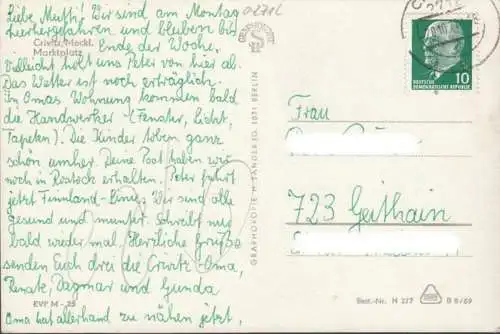 Liebe Mutti! Wir sind am Montag
hierhergefahren und bleiben bis
Crivitz/Meckl.
Marktplatz
Ende der Woche,
vielleicht holt uns Peter von hier ab.
Das Wetter ist noch erträglich.
In Omas Wohnung kommen bald
die Handwerker (Fenster, Licht,
Tapeten). Die Kinder toben ganz
schön umher. Deine Post haben wir
noch in Rostock erhalten. Peter fährt
jetzt Finnland-Linie. Wir sind alle
gesund und munter. Schreib mal
bald wieder mal. Herzliche Grüße
senden Euch drei die Crivitz-Oma,
Renate, Dagmar und Gunda
EVP M -,25
Oma hat allerhand zu nähen jetzt,
0271c
GRAPHOKOPIE H. SANDER KG, 1071 BERLIN
DEUTSCHE
DEMOKRATISCHE REPUBLIK
10
Frau
723 Geithain
Best.-Nr. H 227
B 8/69